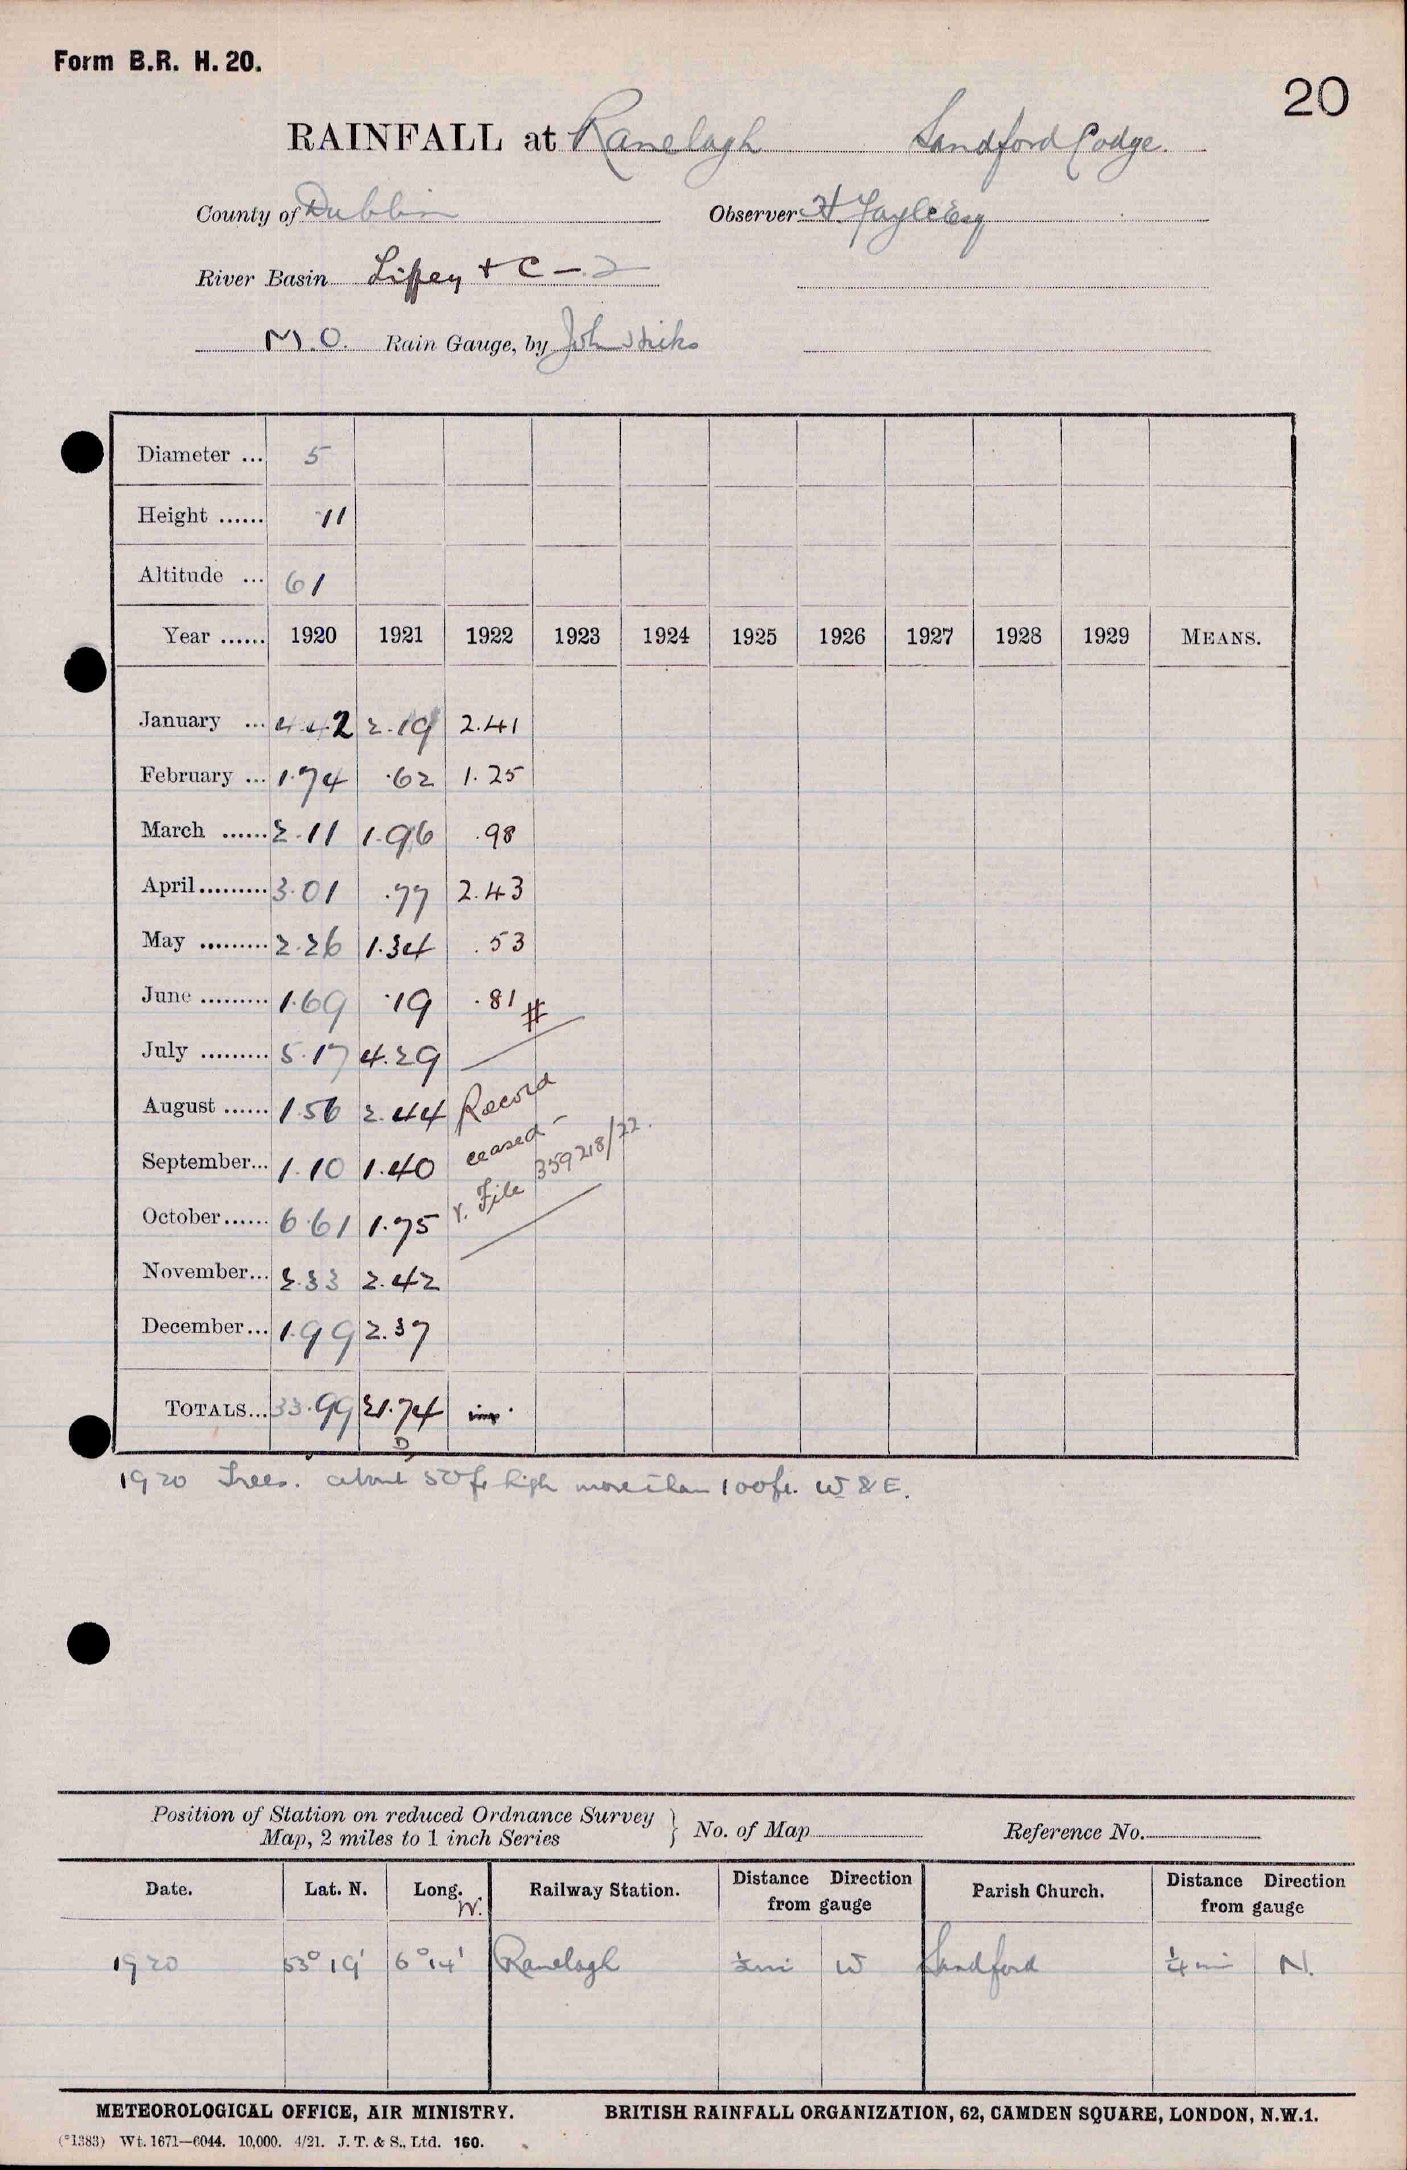 Form B.R. H. 20.
20
RAINFALL at Ranelagh Sandford Lodge.
County of Dublin Observer H. Fayle Esq
River Basin Liffey + C - 2
M.O. Rain Gauge, by John Hicks
Diameter ... 5
Height ...... 11
Altitude ... 61
Year ...... 1920 1921 1922 1923 1924 1925 1926 1927 1928 1929 MEANS.
January ... 4.42 2.19 2.41
February ... 1.74 .62 1.25
March ...... 2.11 1.96 .98
April ......... 3.01 .77 2.43
May ......... 2.26 1.34 .53
June ......... 1.69 .19 .81 #
July ......... 5.17 4.29
August ...... 1.56 2.44 Record
September... 1.10 1.40 ceased -
October...... 6.61 1.75 v. File 359218/22.
November... 2.33 2.42
December... 1.99 2.37
TOTALS... 33.99 21.74 imp.
D
1920 Trees. about 50 ft high more than 100 ft. W & E.
Position of Station on reduced Ordnance Survey
Map, 2 miles to 1 inch Series } No. of Map Reference No.
Date. Lat. N. Long. W. Railway Station. Distance Direction from gauge Parish Church. Distance Direction from gauge
1920 53° 19' 6° 14' Ranelagh ½ mi W Sandford ¼ mi N.
METEOROLOGICAL OFFICE, AIR MINISTRY. BRITISH RAINFALL ORGANIZATION, 62, CAMDEN SQUARE, LONDON, N.W.1.
(*1383) Wt. 1671—6044. 10,000. 4/21. J. T. & S., Ltd. 160.